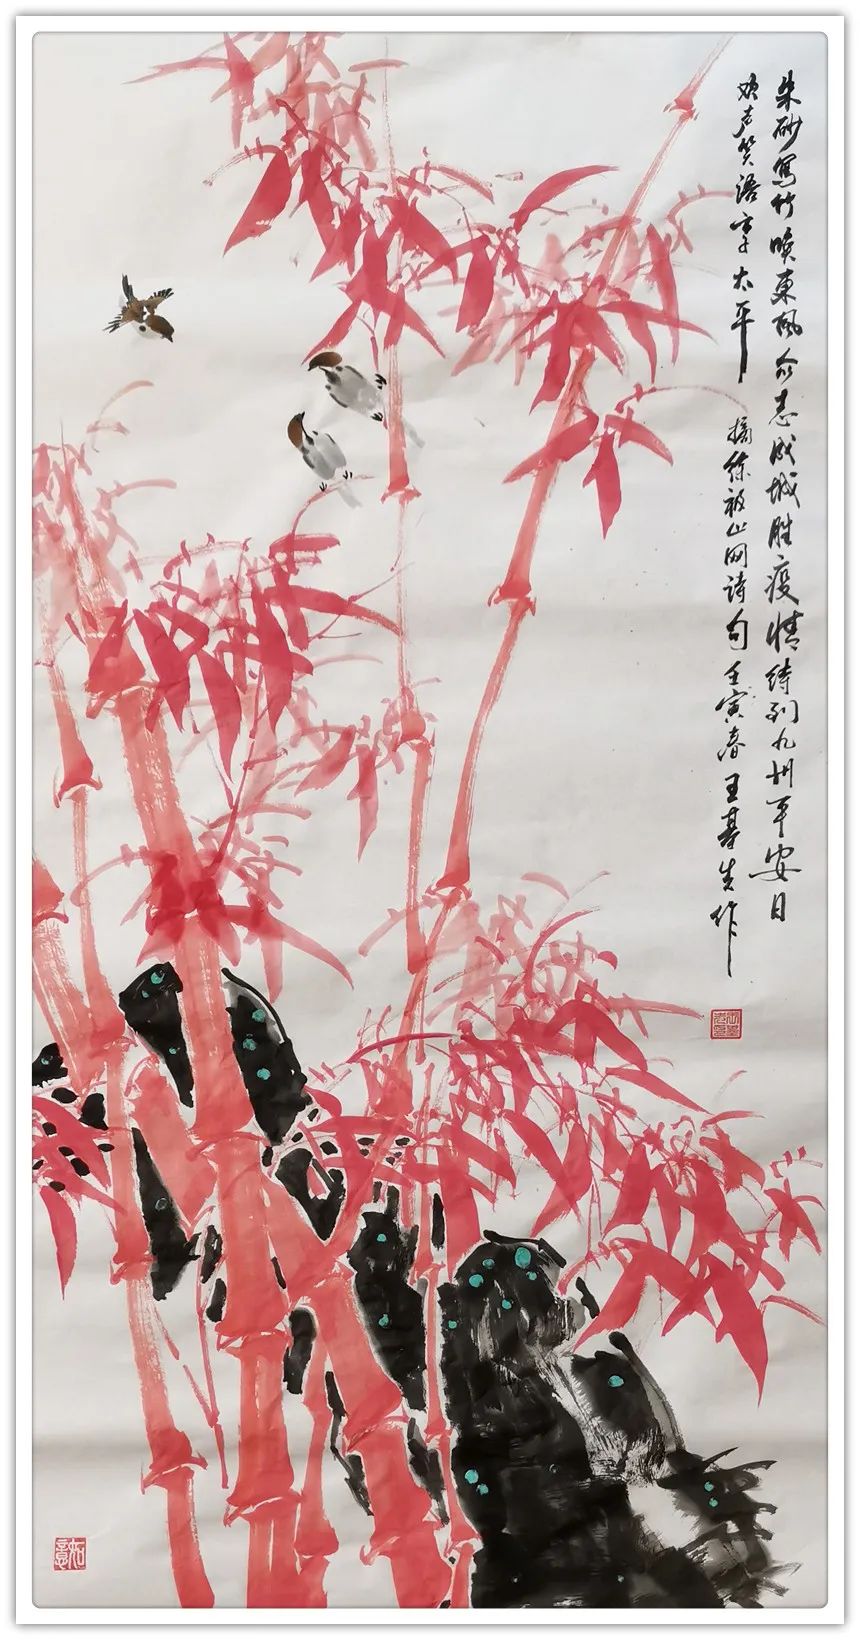 朱砂写竹暎東風众志成城胜疫情待到九州平安日
欢声笑语享太平 摘练被山网诗句 壬寅春王基生作
如意